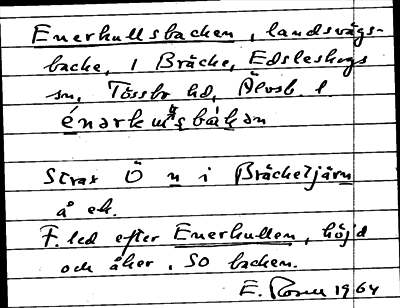 Enerkullsbacken, landsvägs-
backe, i Bräcke, Edsleskogs
sn, Tössbo hd, Älvsb. l.
énərkulsbàkən
Strax Ö n i Bräcketjärn
å ek.
F. led efter Enerkullen, höjd
och åker, SO backen.
E. 1964